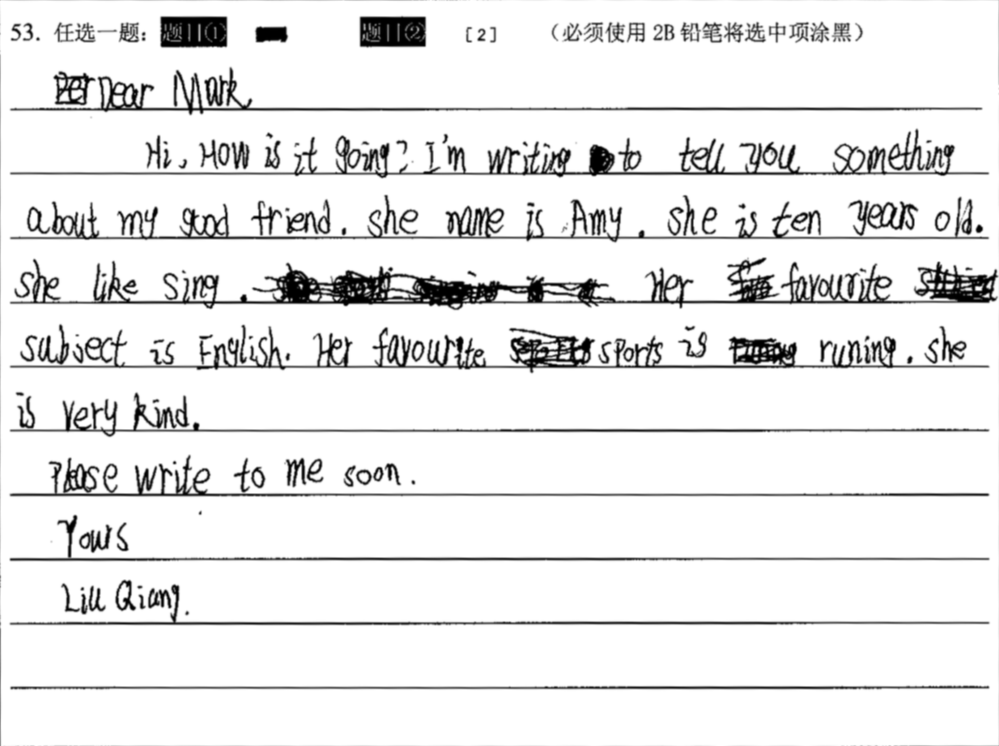 53. 任选一题：题目① 题目② [2] （必须使用 2B 铅笔将选中项涂黑）
Dear Mark
Hi, How is it going? I'm writing to tell you something
about my good friend. she name is Amy. she is ten years old.
she like sing. Her favourite
subject is English. Her favourite sports is runing. she
is very kind.
Please write to me soon.
Yours
Liu Qiang.